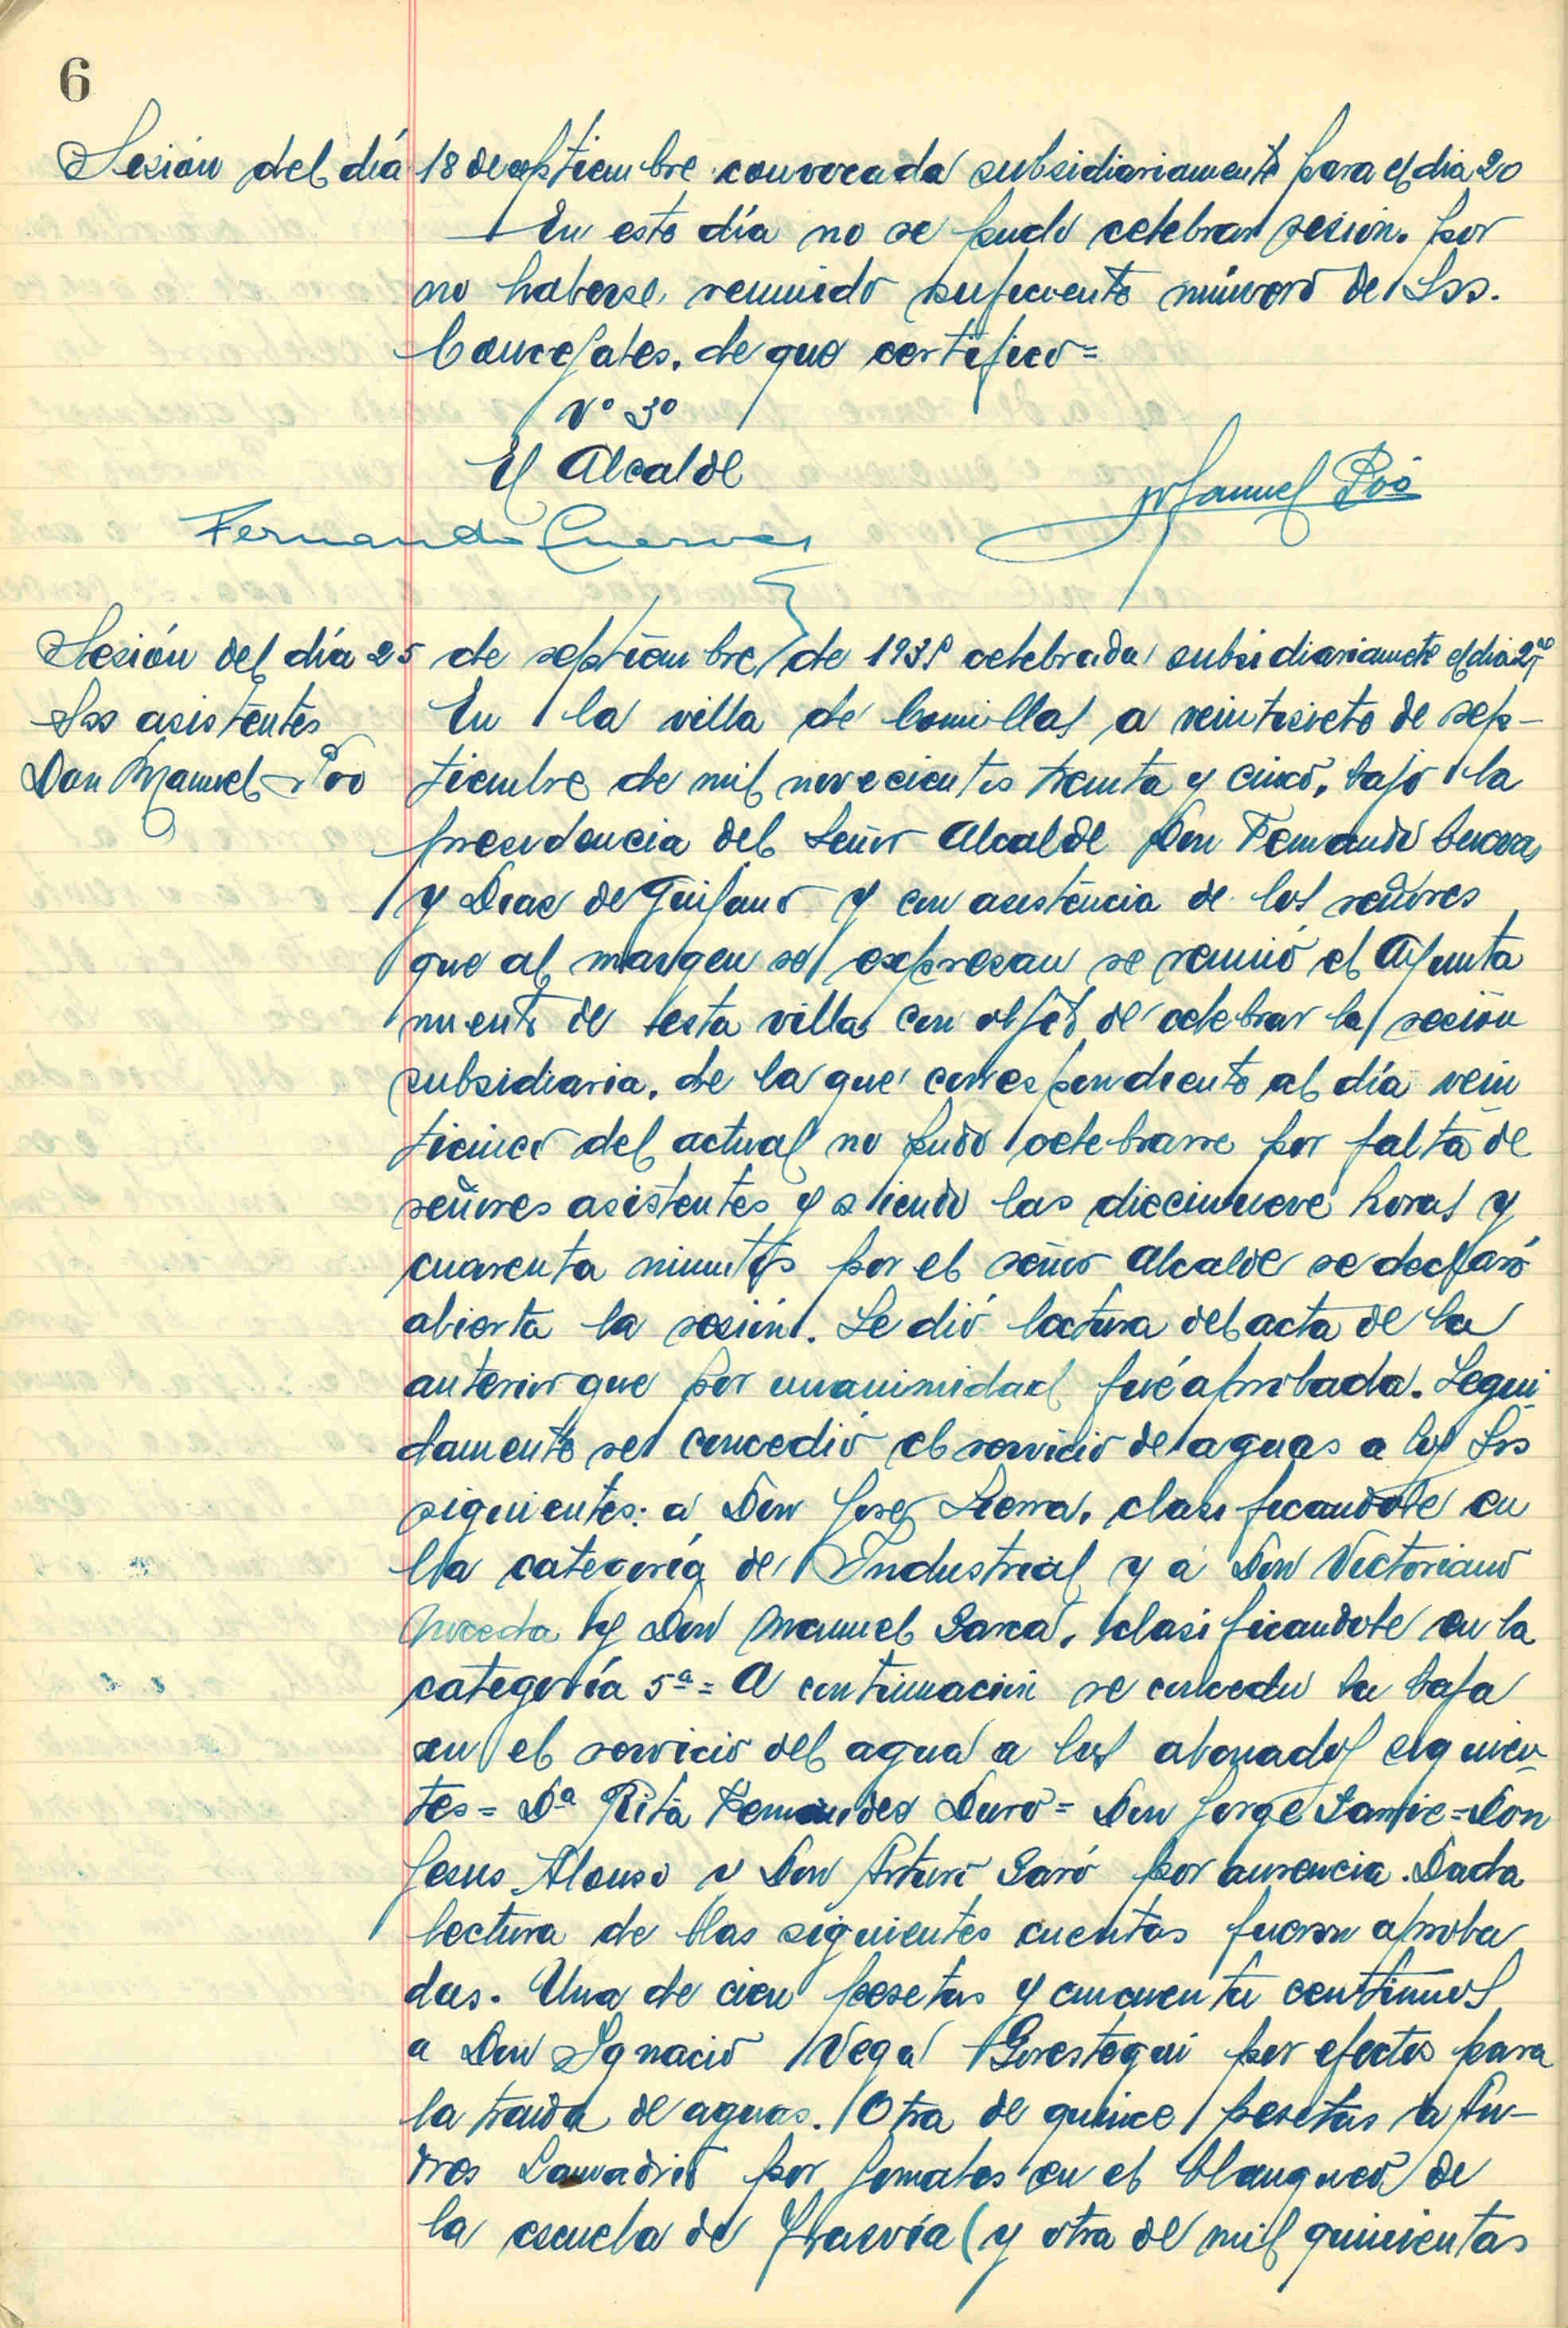 6
Sesión del día 18 de septiembre convocada subsidiariamente para el dia 20
En este día no se pudo celebrar sesion. por
no haberse reunido suficiente número de Srs.
Concejales. de que certifico=
Vº Bº
El Alcalde
Manuel Poo
Fernando Cuevas
Sesión del día 25 de septiembre de 1935 celebrada subsidiariamete el dia 27
Srs asistentes
Don Manuel Poo
En la villa de Comillas a veintisiete de sep-
tiembre de mil novecientos treinta y cinco, bajo la
presidencia del Señor Alcalde Don Fernando Cuevas
y Diaz de Güifano y con asistencia de los señores
que al margen se expresan se reunió el Ayunta
miento de esta villa con objeto de celebrar la sesión
subsidiaria. de la que correspondiente al día vein
ticinco del actual no pudo celebrarse por falta de
señores asistentes y siendo las diecinueve horas y
cuarenta minutos por el señor Alcalde se declaró
abierta la sesión. Se dió lectura del acta de la
anterior que por unanimidad fué aprobada. Segui
damente se concedió el servicio de aguas a los Srs
siguientes: a Don José Sierra, clasificandole en
la categoría de Industrial y a Don Victoriano
Noceda y Don Manuel Garca, clasificandole en la
categoría 5ª = A continuación se concedio la baja
en el servicio del agua a los abonados siguien-
tes = Dª Rita Fernández Duro = Don Jorge = Don
Jesus Alonso y Don Arturo Saró por ausencia. Dada
lectura de las siguientes cuentas fueron aproba
das. Una de cien pesetas y cincuenta centimos
a Don Ignacio Vega Gorostegui por efectos para
la traida de aguas. Otra de quince pesetas a An-
dres Lamadrid por jornales en el blanqueo de
la escuela de Trasvía y otra de mil quinientas